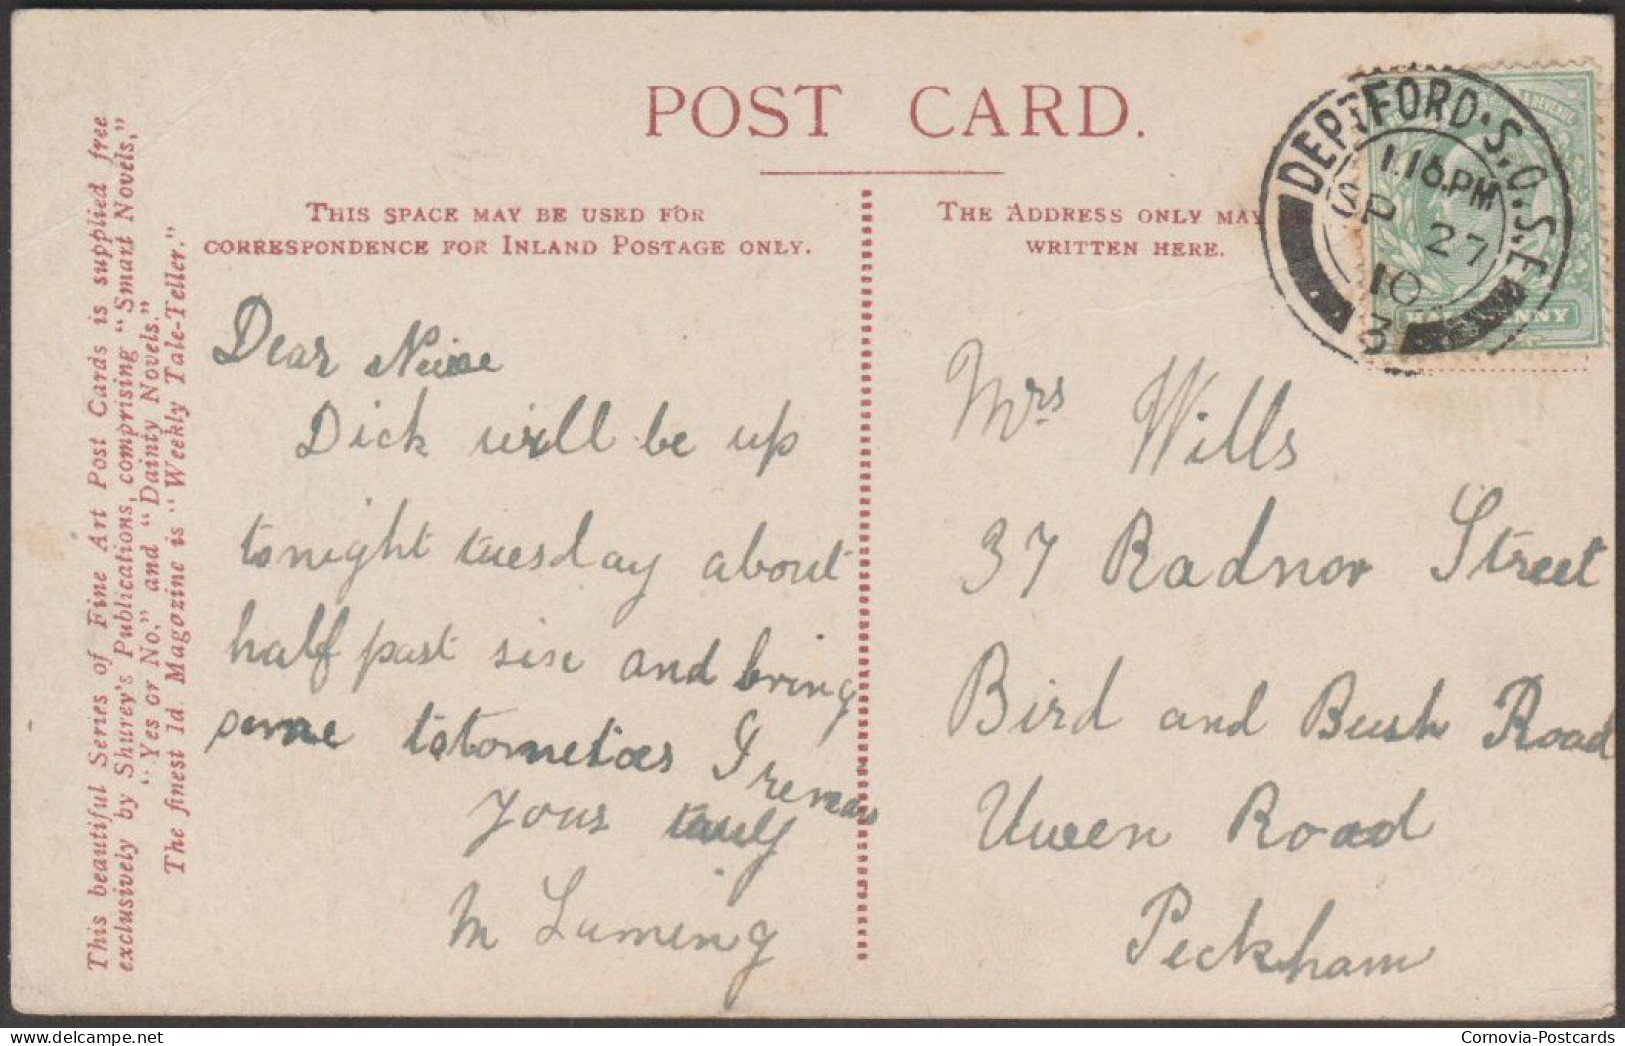 This beautiful Series of Fine Art Post Cards is supplied free
exclusively by Shurey's Publications, comprising "Smart Novels,"
"Yes or No," and "Dainty Novels."
The finest 1d. Magazine is "Weekly Tale-Teller."
POST CARD.
THIS SPACE MAY BE USED FOR
CORRESPONDENCE FOR INLAND POSTAGE ONLY.
THE ADDRESS ONLY MAY
WRITTEN HERE.
DEPTFORD. S.O. S.E.
1.15.PM
SP 27
10
3
HALFPENNY
Dear
Dick will be up
tonight tuesday about
half past sixe and bring
some totometioes I remain
yours truly
M Luming
Mrs Wills
37 Radnor Street
Bird and Bush Road
Uueen Road
Peckham
Cornovia-Postcards